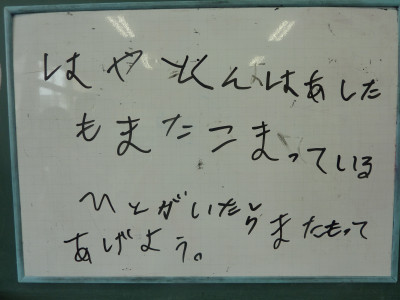 はやとくんはあした
もまたこまっている
ひとがいたらまたもって
あげよう。